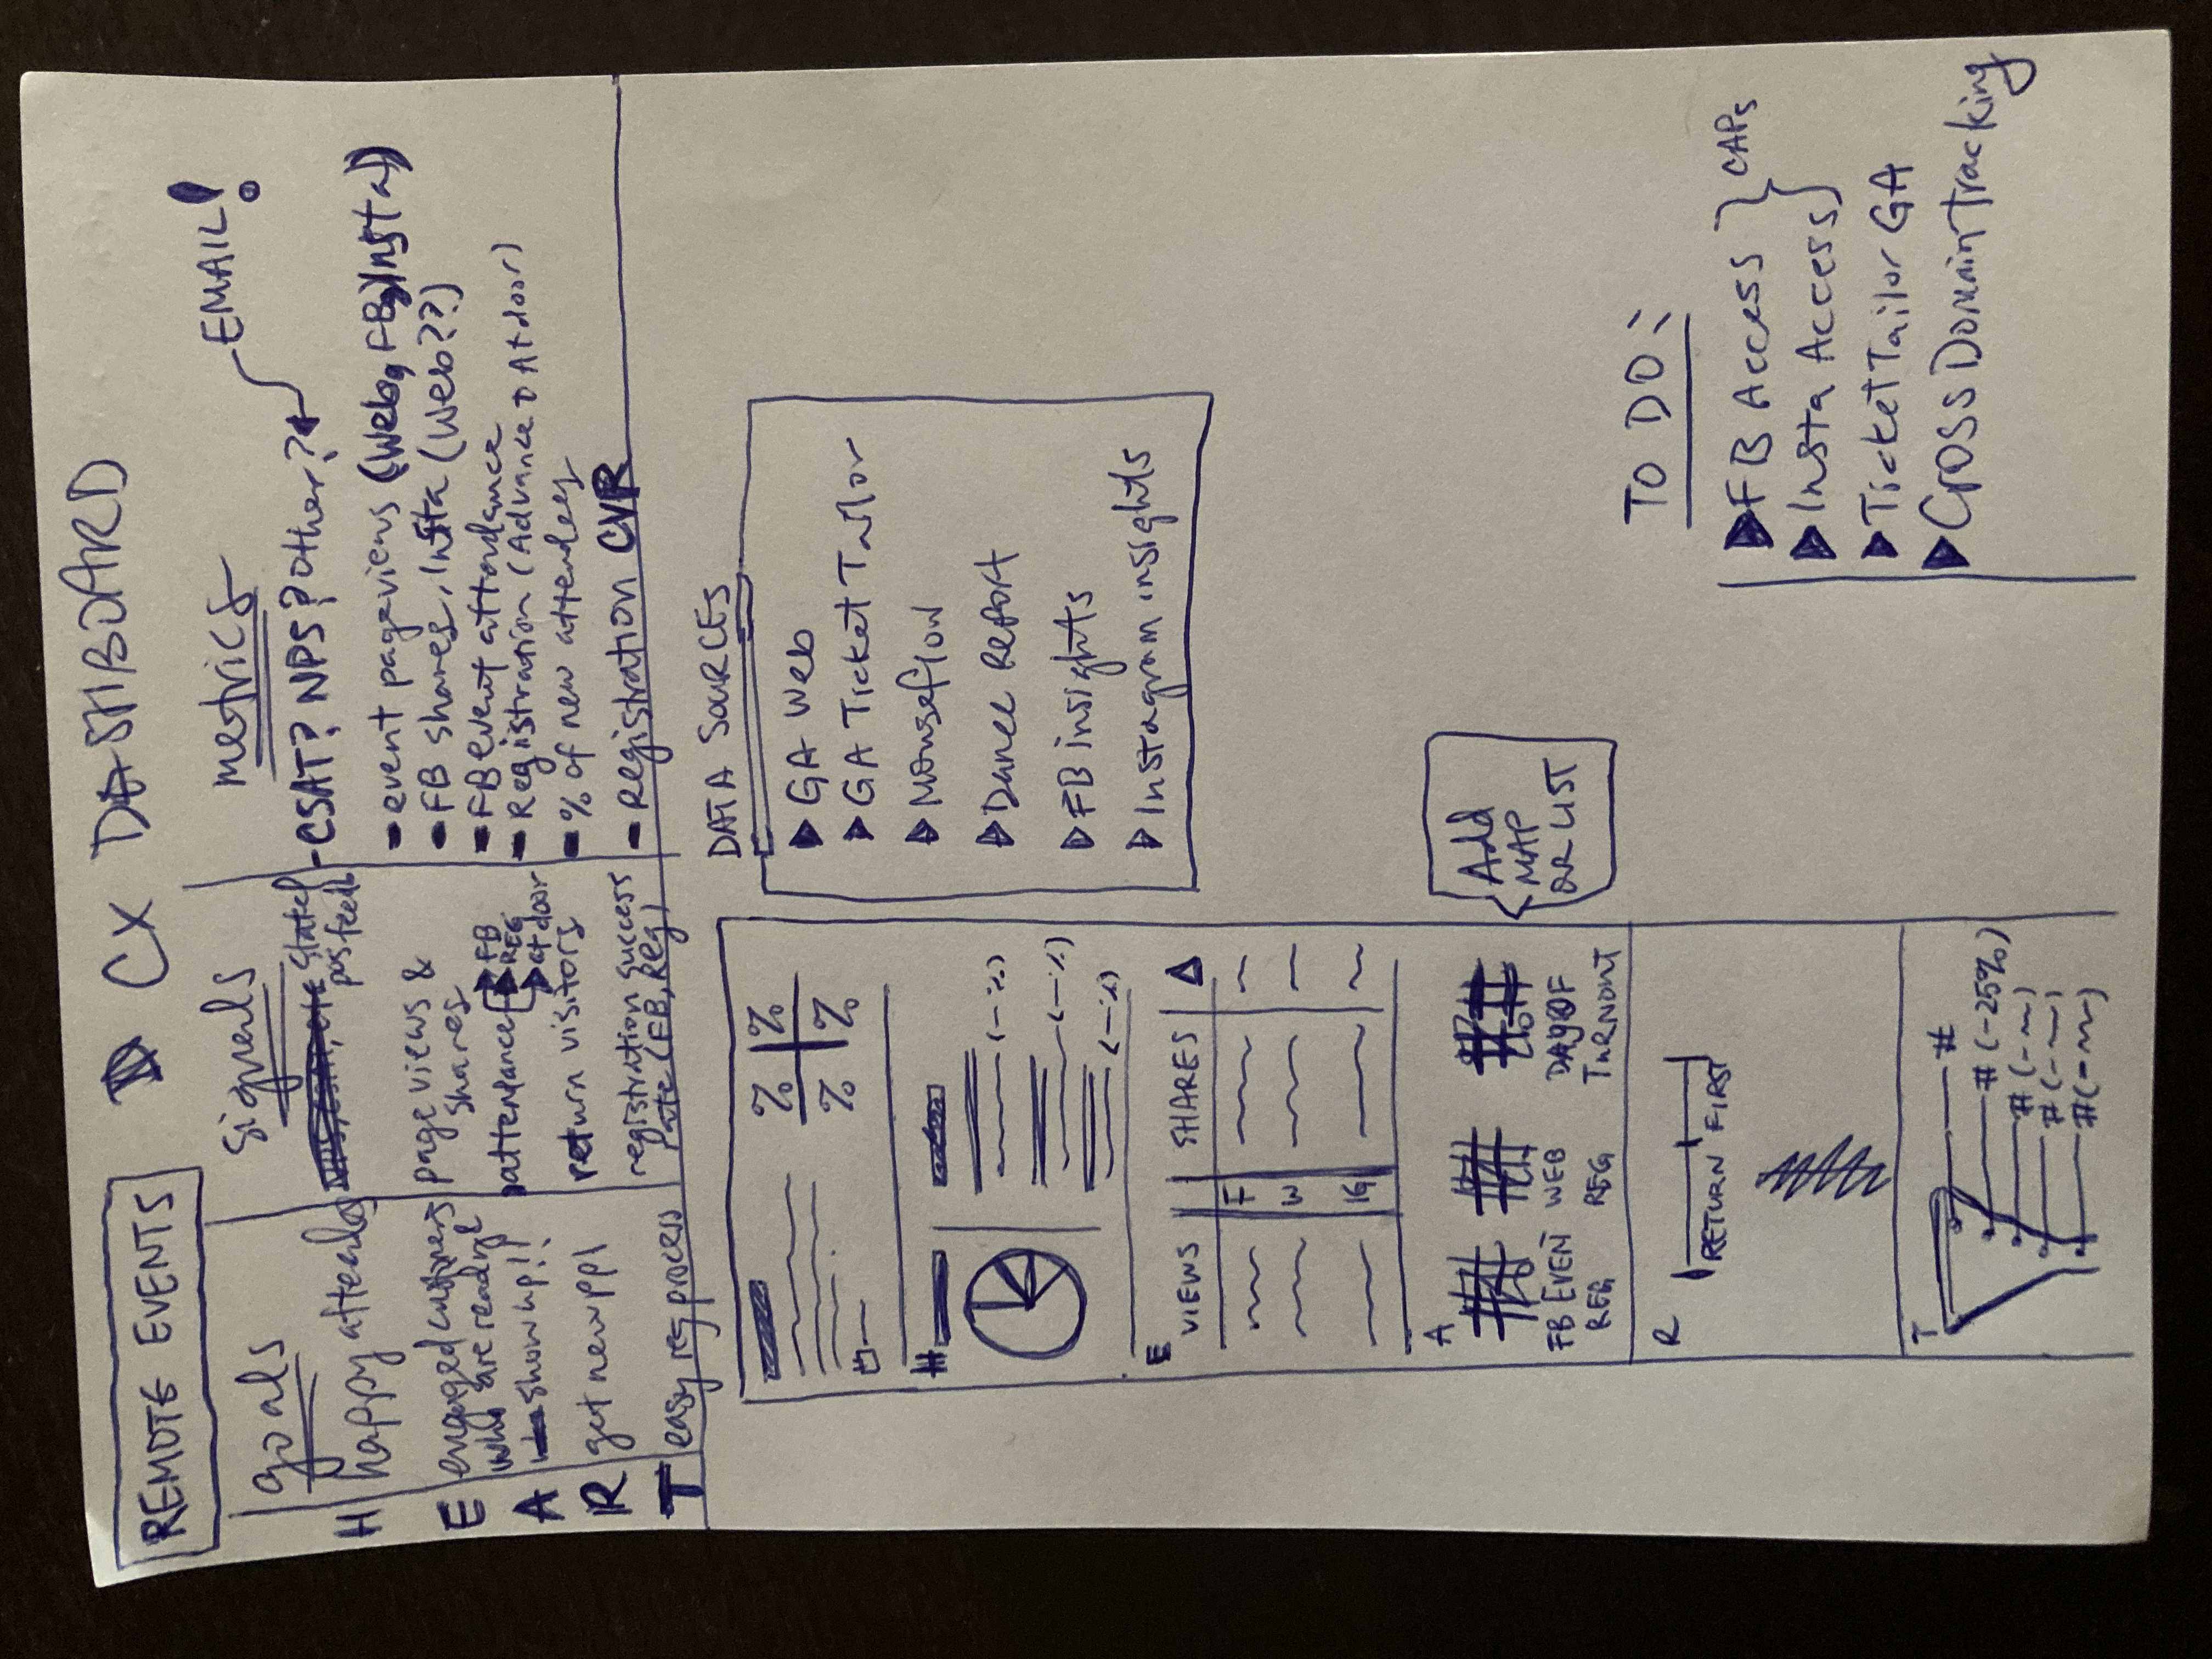 REMOTE EVENTS
CX DASHBOARD
goals
signals
metrics
EMAIL!
H
happy attendees
stated
pos feedb
- CSAT? NPS? other?
E
engaged customers
who are ready 2
show up!!
page views &
shares
- event pageviews (Web, FB, Insta)
- FB shares, Insta (Web??)
A
attendance
FB
REG
at door
- FB event attendance
- Registration (Advance & At door)
R
get new ppl
return visitors
- % of new attendees
T
easy reg process
registration success
rate (FB, Reg)
- Registration CVR
DATA SOURCES
GA Web
GA Ticket Tailor
Mouseflow
Dance Report
FB insights
Instagram insights
% %
% %
H
(-%)
(-%)
(-%)
E
VIEWS SHARES Δ
F
W
IG
A
FB EVEN
REG
WEB
REG
DAY OF
TURNOUT
Add
MAP
OR LIST
R
RETURN FIRST
T
#
# (-25%)
# (-
# (-
# (-
TO DO:
FB Access
Insta Access
CAPs
Ticket Tailor GA
Cross Domain Tracking